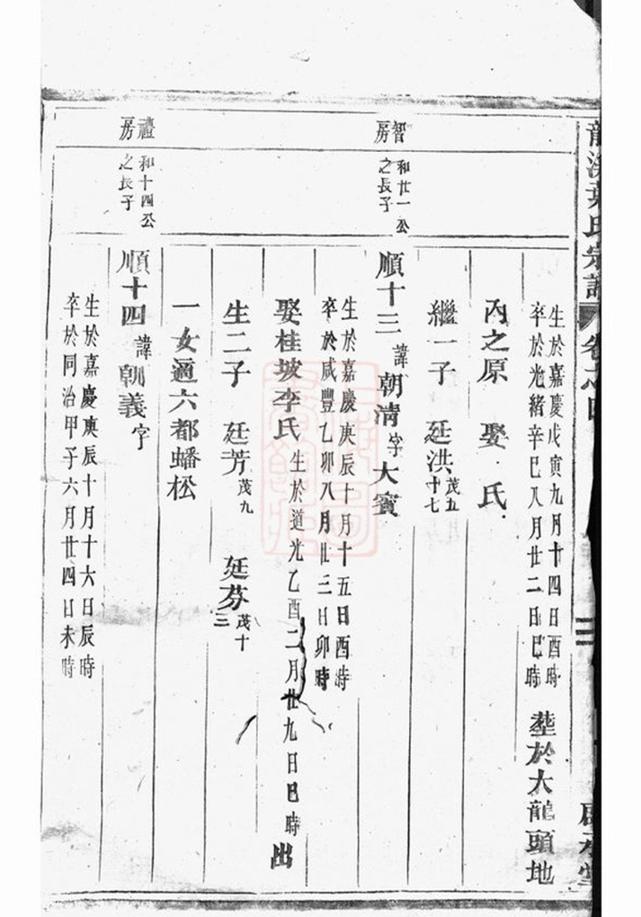 葉氏宗譜
生於嘉慶戊寅九月十四日酉時
卒於光緒辛巳八月廿二日巳時
塟於大龍頭地
內之原 娶 氏
繼一子 廷洪 茂五十七
智房
和廿一公之長子
順十三 諱 朝清 字 大賓
生於嘉慶庚辰十月十五日酉時
卒於咸豐乙卯八月廿三日卯時
娶桂坡李氏 生於道光乙酉二月廿九日巳時 出
生二子 廷芳 茂九 廷芬 茂十三
一女適六都蟠松
禮房
和十四公之長子
順十四 諱 朝義 字
生於嘉慶庚辰十月十六日辰時
卒於同治甲子六月廿四日未時